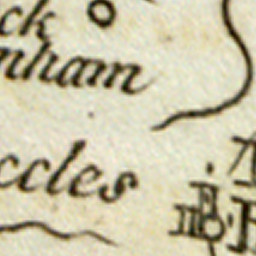 ck
nham
ccles